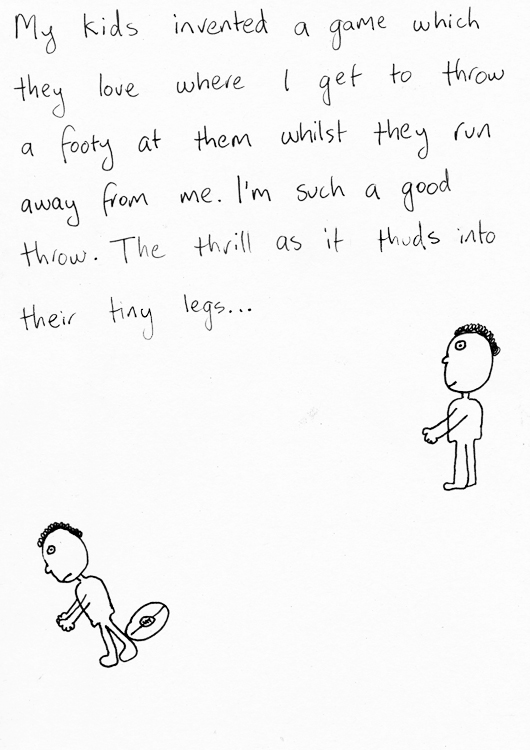 My kids invented a game which
they love where I get to throw
a footy at them whilst they run
away from me. I'm such a good
throw. The thrill as it thuds into
their tiny legs...